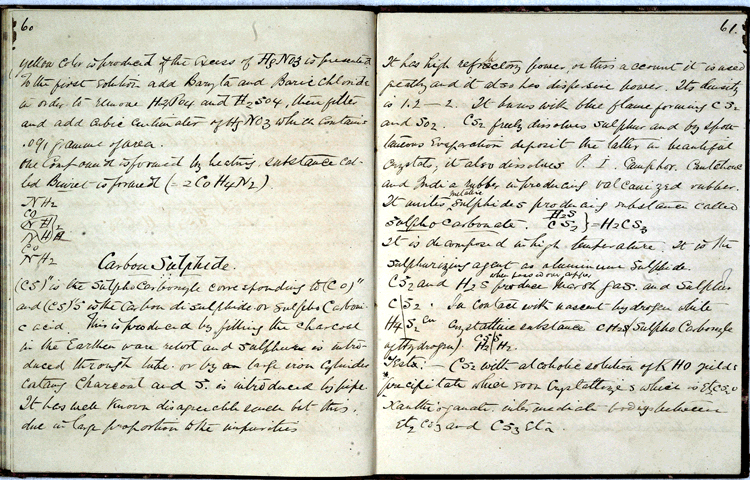 60
yellow color is produced if the excess of HgNO3 is presented
To the first solution add Baryta and Baric Chloride
in order to remove H2SO4 and H2SO4, then filter
and add cubic centimater of HgNO3 which contains
.091 gramme of area.
the Compound is formed by heating, substance cal-
led Biuret is formed (= 2CoH4N2).
NH2
CO
NH
CO
NH2
Carbon Sulphide.
(CS)" is the Sulpho Carbonyle corresponding to (CO)"
and (CS)"S" is the Carbon disulphide or Sulpho Carboni-
c acid. This is produced by filling the charcoal
in the Earthen ware retort and sulphur is intro-
duced through tube. or by a large iron Cylinder
containg Charcoal and S. is introduced by pipe
It has well known disagreeable smell but this,
due in large proportion to the impurities
61.
It has high refractory power, on this account it is used
greatly and it also has dispersive power. Its density
is 1.2 — 2. It burns with blue flame forming CS2
and SO2. CS2 freely dissolves sulphur and by spon-
taneous Evaporation deposit the latter in beautiful
Crystals, it also dissolves P. I. Camphor. Caoutchouc
and India rubber in producing valcanized rubber.
It unites metallic Sulphides producing substance called
Sulpho Carbonate. H2S CS2 } = H2CS3
It is decomposed in high temperature. It is the
sulphurizing agent as aluminium Sulphide.
CS2 and H2S produce Marsh gas. and Sulphur
CS2. In contact with nascent hydrogen white
H4 S2 Cu Crystalline substance CH2S (Sulpho Carbonyle
of hydrogen)
CS2 with alcoholic solution of KHO yields
precipitate which soon Crystallizes which is Et
Xanthi organate. intermediate bodies between
Et2 CO3 and CS3 Et2